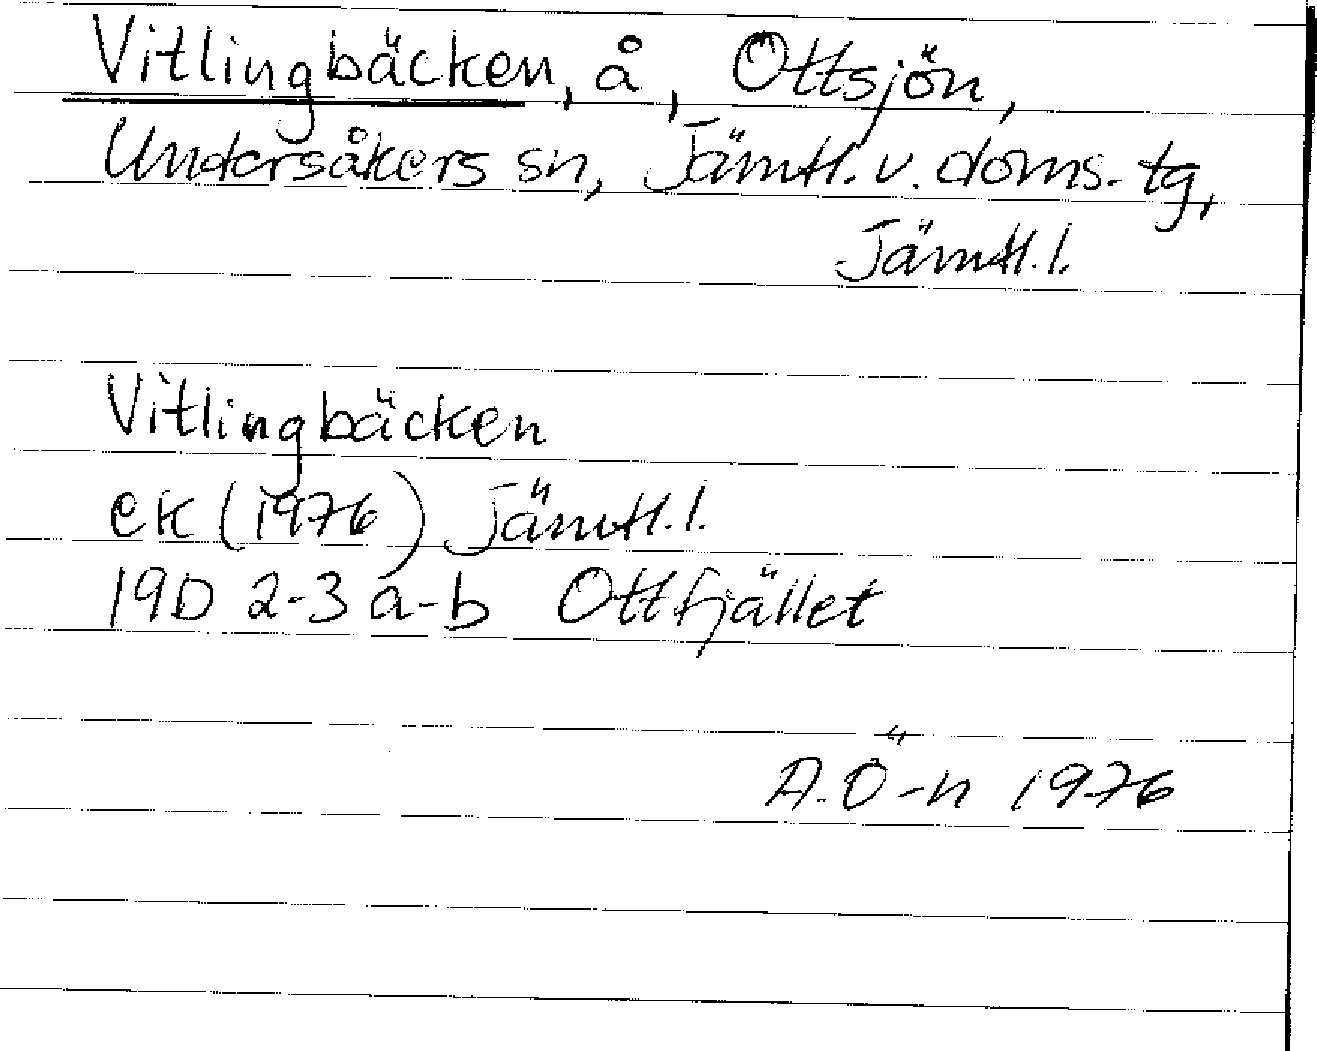 Vitlingbäcken, å, Ottsjön,
Undersåkers sn, Jämtl. v. doms. tg,
Jämtl. l.
Vitlingbäcken
ek (1976) Jämtl. l.
19D 2-3 a-b Ottfjället
A.Ö-n 1976